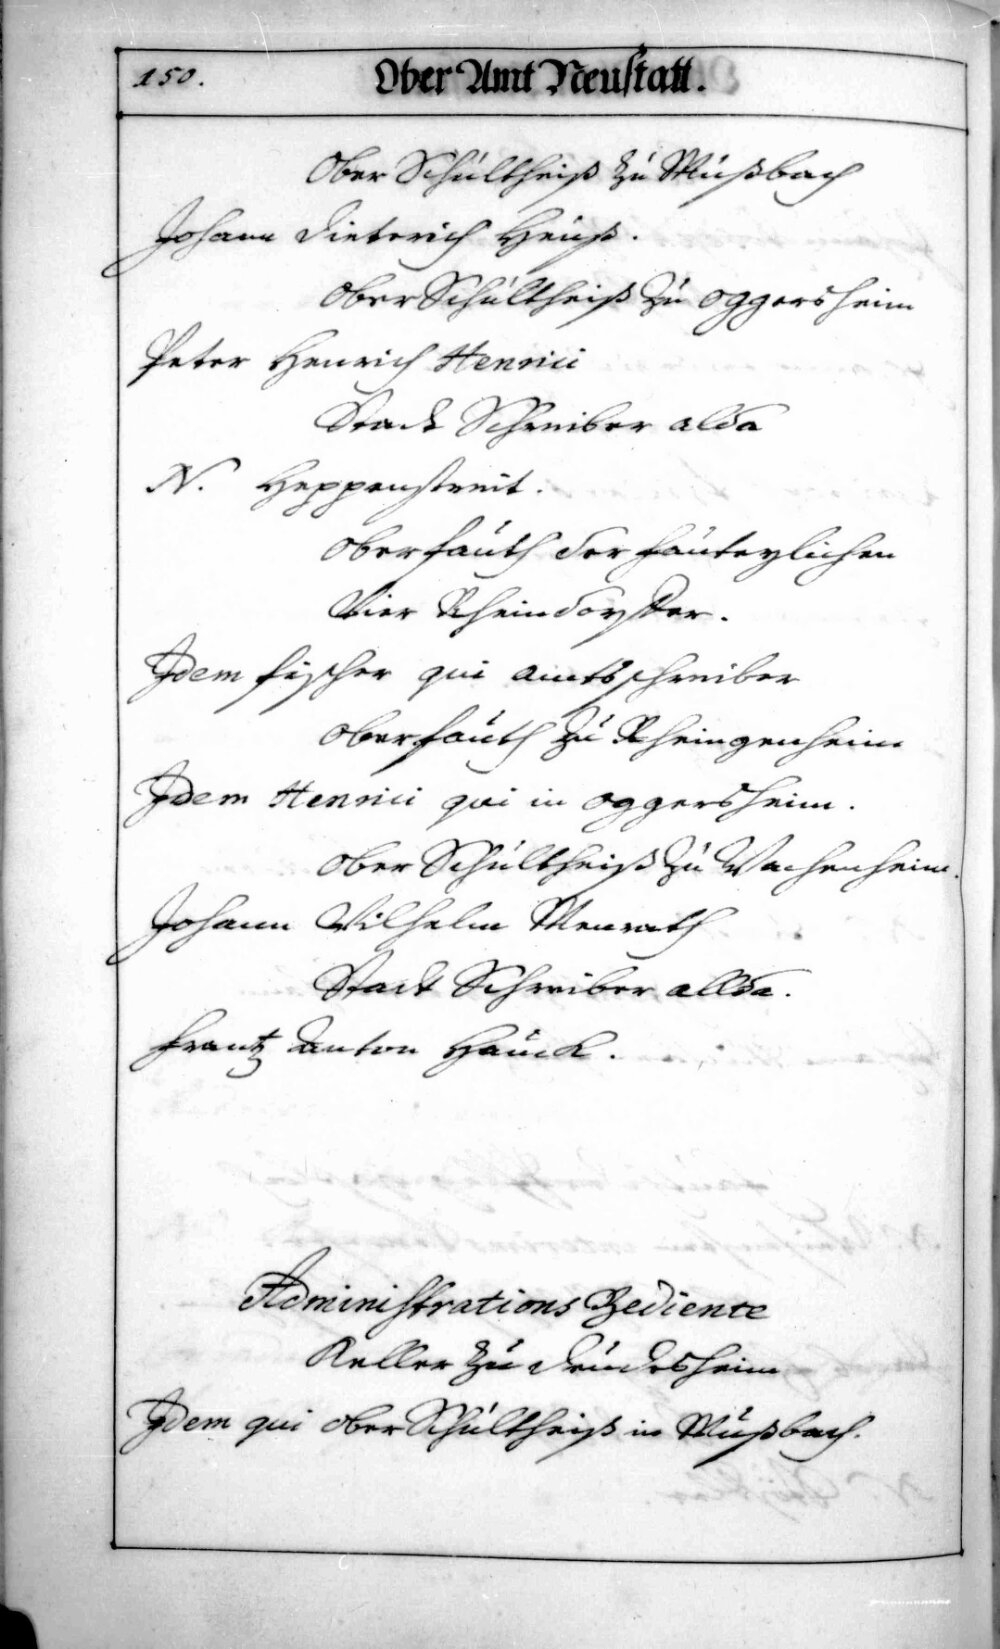 150.
Ober Amt Neustatt.
Ober Schultheiß zu Mußbach
Johann Dieterich Heuß.
Ober Schultheiß zu Oggersheim
Peter Henrich Henrici
Stadt Schreiber alda
N. Heppenstreit.
Oberfauth der fauteylichen
Vier Rheindorffer.
Idem fischer qui amtsschreiber
Oberfauth zu Rheingenheim
Idem Henrici qui in Oggersheim.
Ober Schultheiß zu Wachenheim.
Johann Wilhelm Menrath
Stadt Schreiber allda.
Frantz Anton Hauck.
Administrations Bediente
Keller zu Deudesheim
Idem qui Ober Schultheiß in Mußbach.